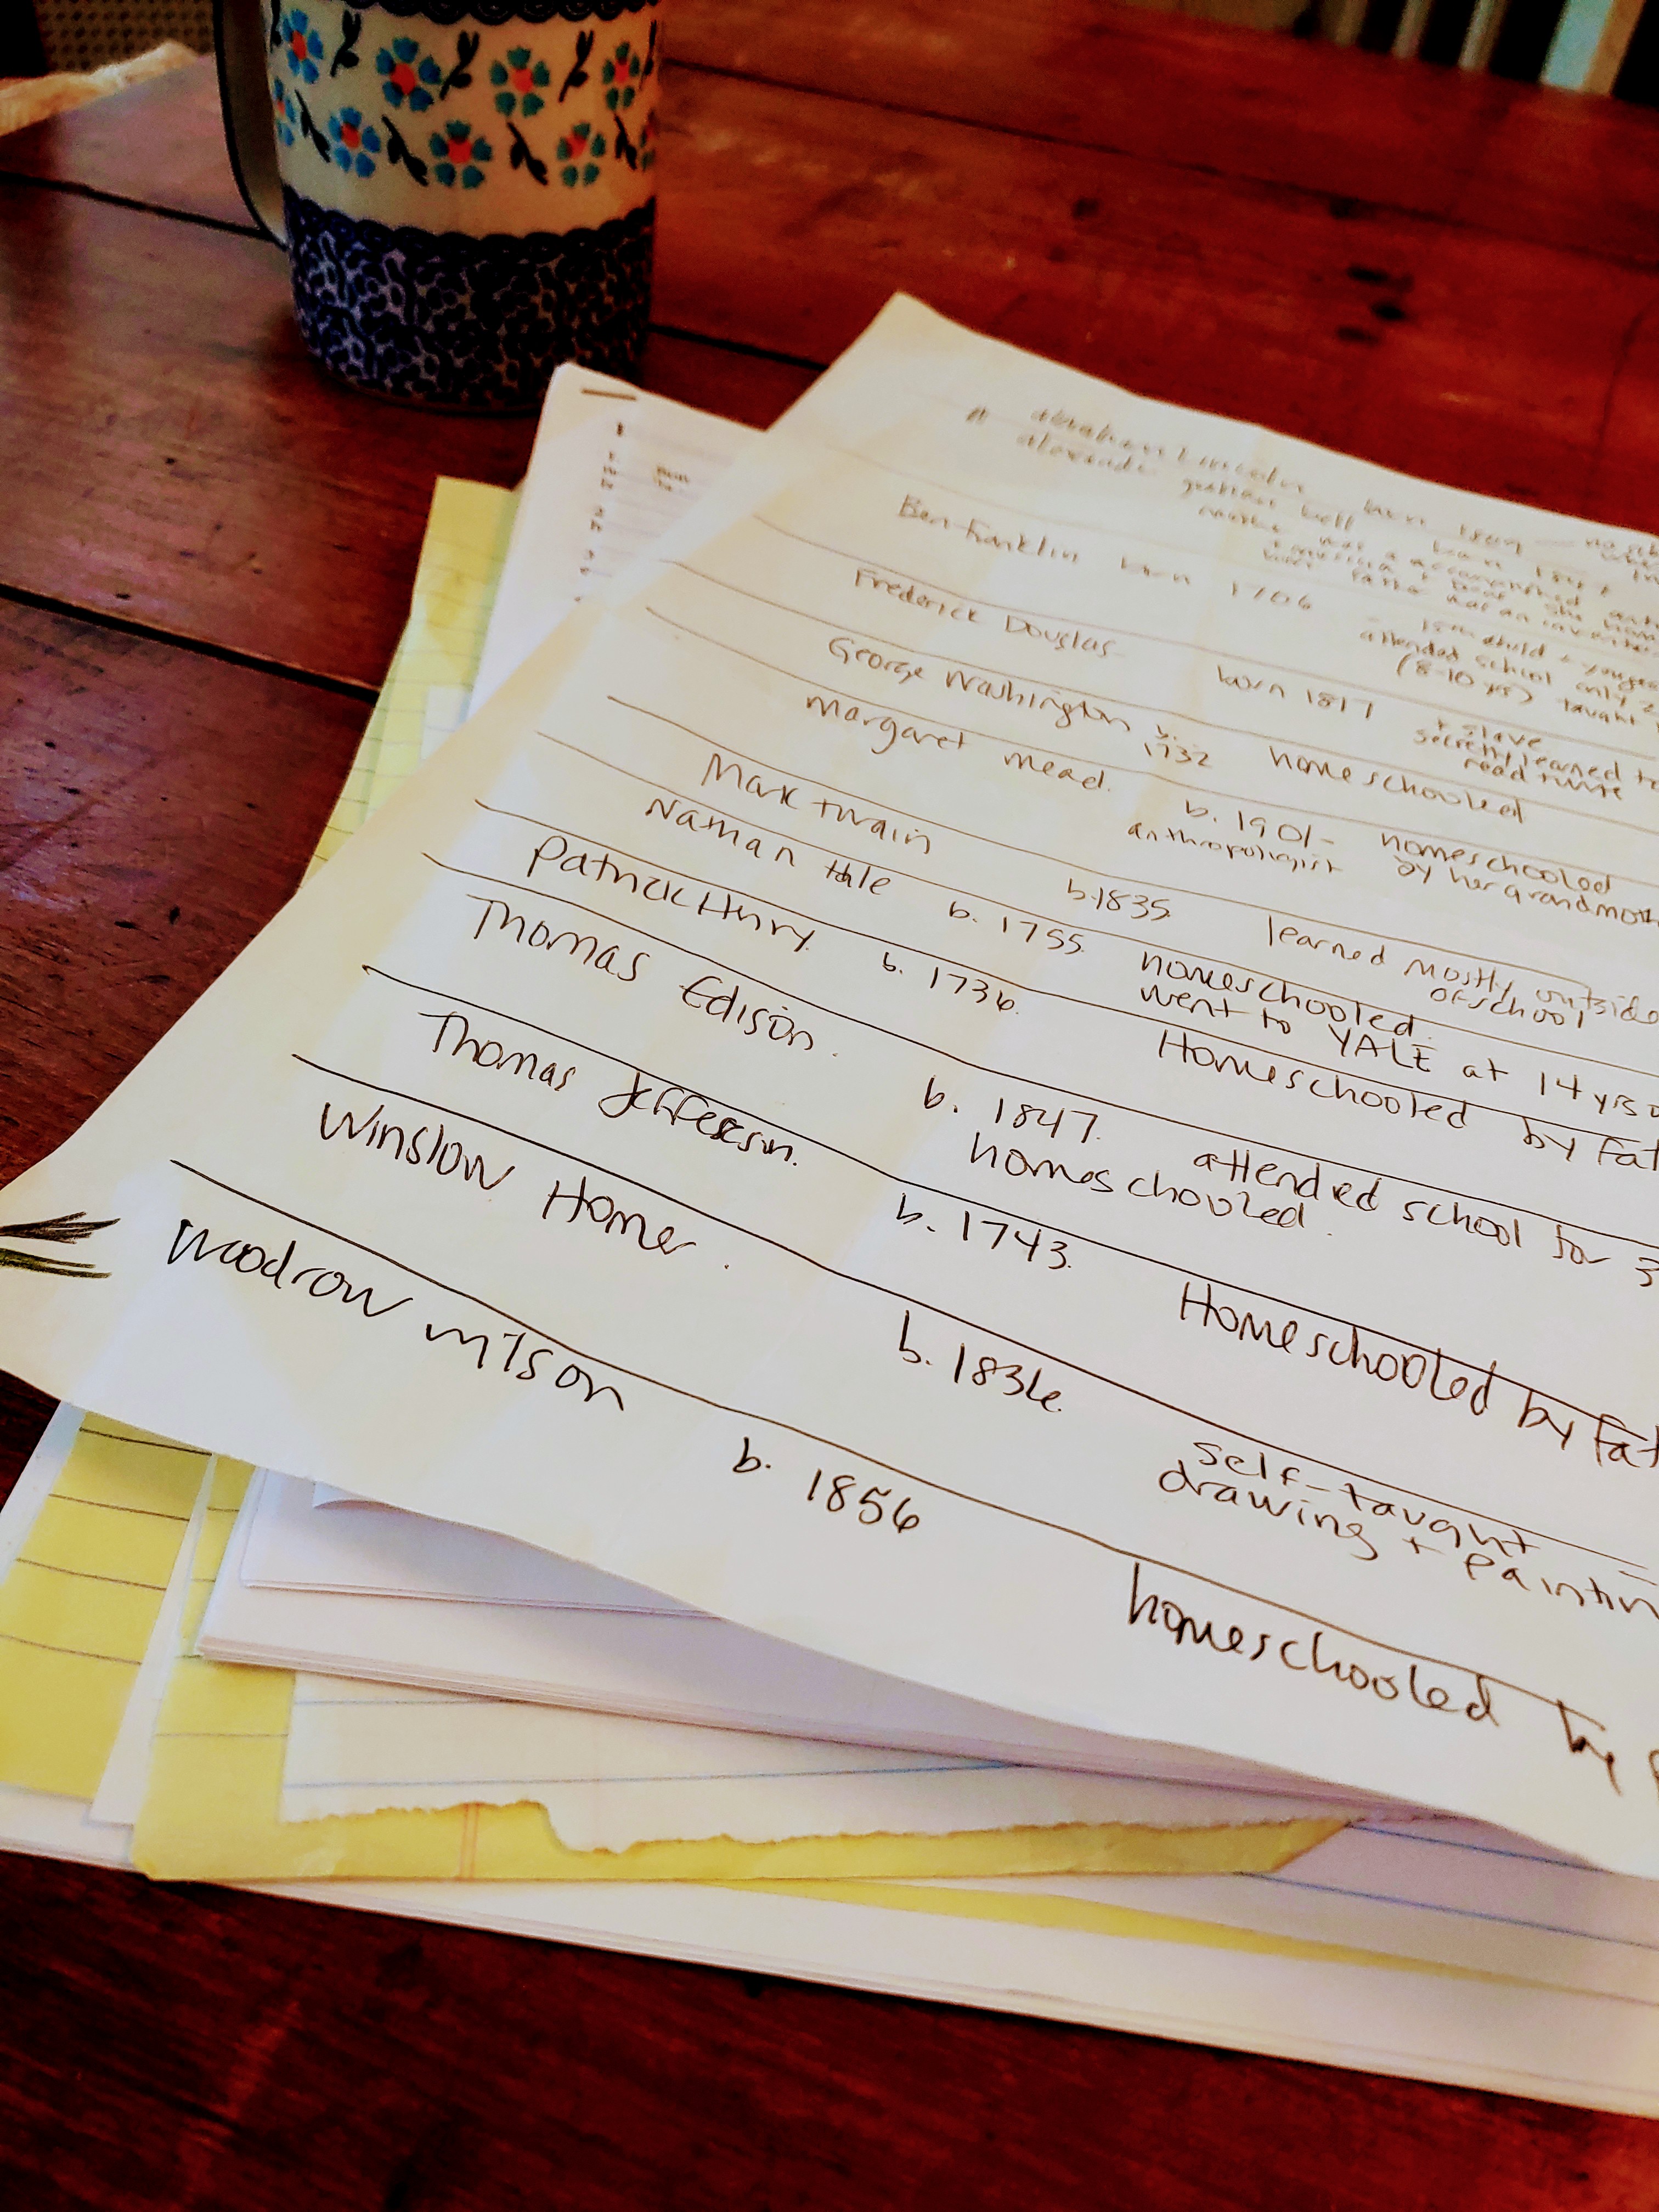 abraham Lincoln born 1809 - no sch
alexander graham bell born 1847
mother was a accomplished
father was an inventor
Ben Franklin born 1706 - 15th child + younges
attended school only 2
(8-10 yrs) taught
Frederick Douglas born 1817 + slave
secretly learned to
read + write
George Washington b. 1732 homeschooled
margaret mead. b. 1901- homeschooled
anthropologist by her grandmoth
Mark twain b. 1835 learned mostly outside
of school
Nathan Hale b. 1755. homeschooled.
went to YALE at 14 yrs o
Patrick Henry. b. 1736. Homeschooled by Fat
Thomas Edison. b. 1847. attended school for 3
homeschooled.
Thomas Jefferson. b. 1743. Homeschooled by Fat
Winslow Homer. b. 1836. self-taught -
drawing + paintin
Woodrow Wilson b. 1856 homeschooled by F